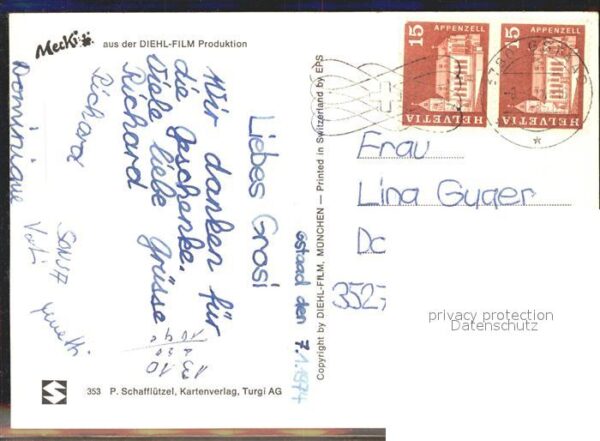 Mecki
aus der DIEHL-FILM Produktion
Gstaad den 7.1.1974
Liebes Grosi
Wir danken für
die Geschenke.
Viele liebe Grüsse
Richard
Richard
Dominique
SONJA
Vati
13
10
353 P. Schafflützel, Kartenverlag, Turgi AG
Copyright by DIEHL-FILM, MÜNCHEN — Printed in Switzerland by EPS
15
APPENZELL
HELVETIA
15
APPENZELL
HELVETIA
Frau
Lina Gyger
352
privacy protection
Datenschutz